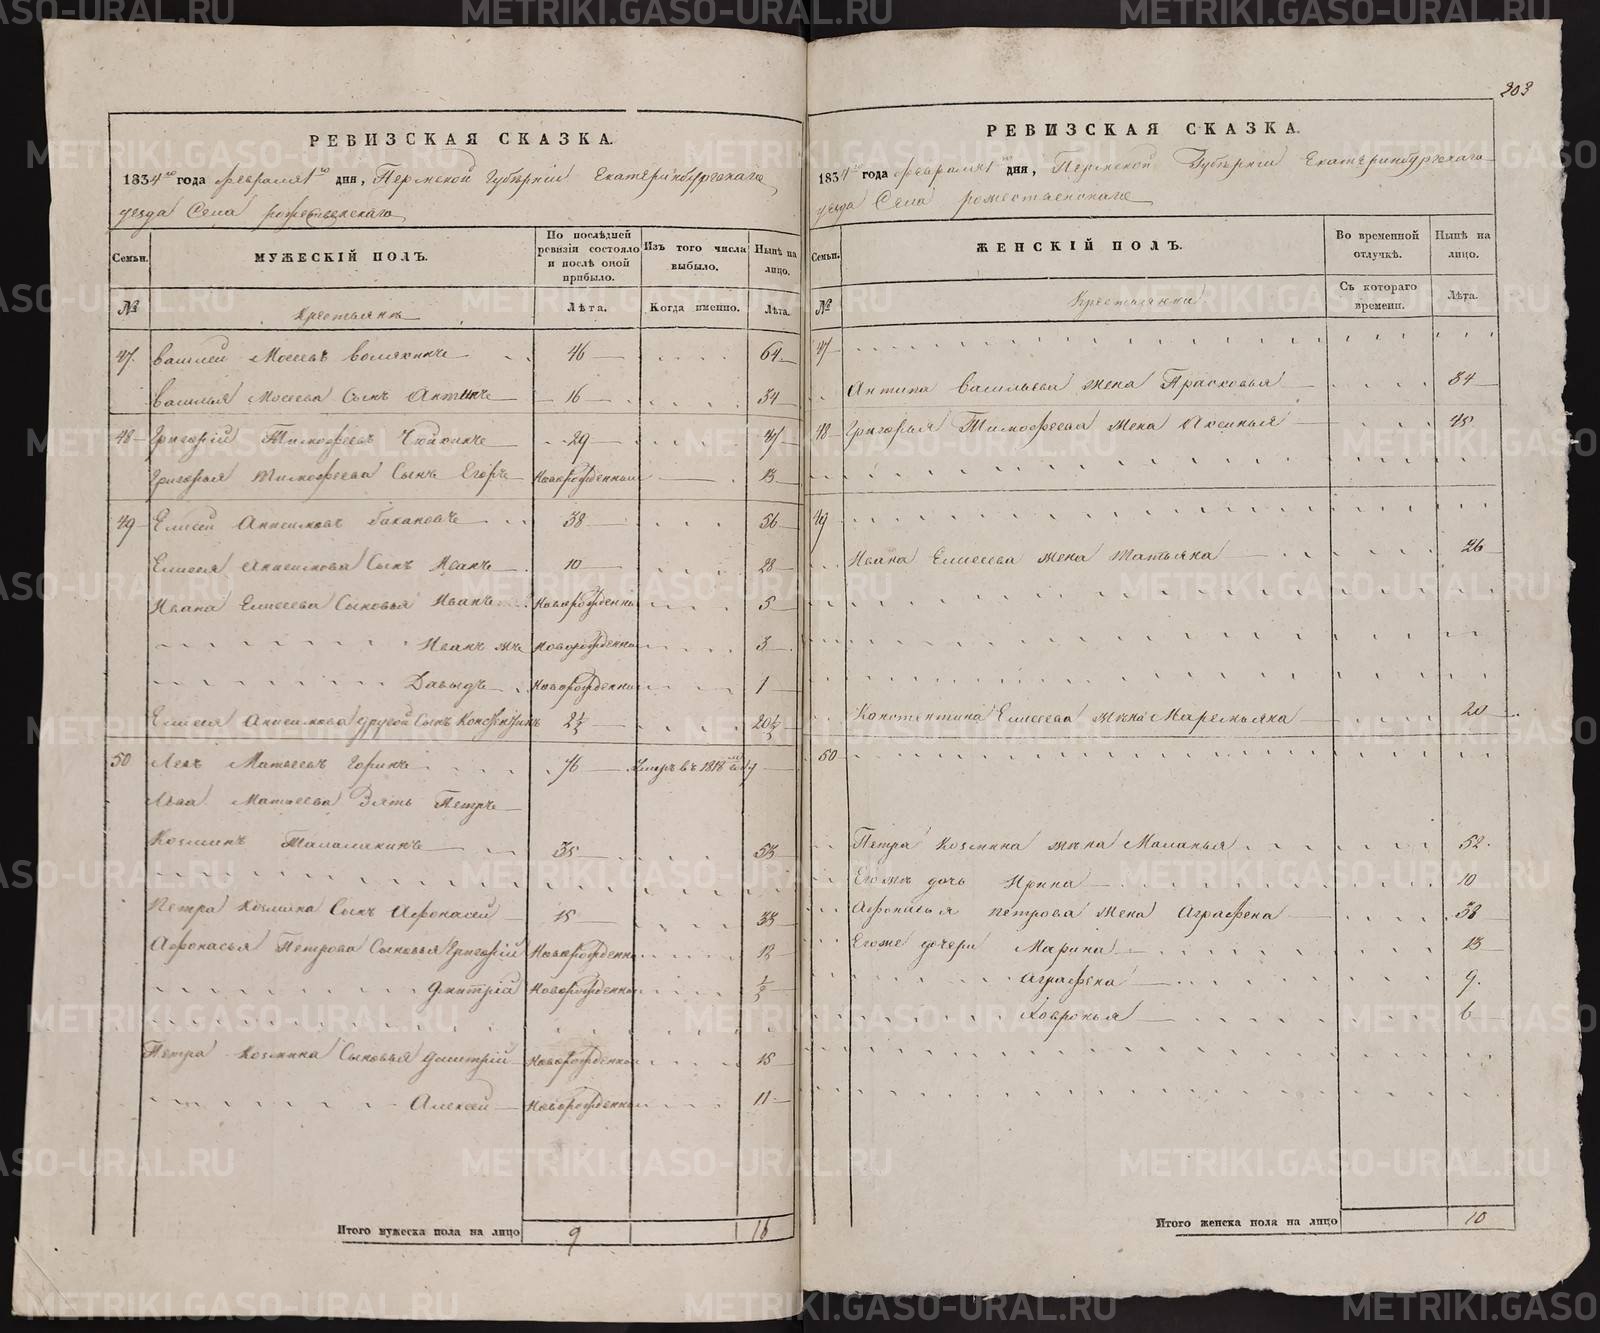 303
РЕВИЗСКАЯ СКАЗКА.
1834го года февраля 1го дня, Пермской Губерніи Екатеринбургскаго
уезда Села рожественскаго
Семьи.
МУЖЕСКІЙ ПОЛЪ.
По послѣдней ревизіи состояло и послѣ оной прибыло.
Изъ того числа выбыло.
Нынѣ на лицо.
№
Крестьянъ
Лѣта.
Когда именно.
Лѣта.
47. Василей Мосеевъ 46 64
Василья Мосеева Сынъ Антипъ 16 34
48 Григорій Тимофеевъ 29 47
Григорья Тимофеева Сынъ Егоръ Новорожденной 13
49 Елисей Анисимовъ 38 56
Елисея Анисимова Сынъ Иванъ 10 28
Ивана Елисеева Сыновья Иванъ Новорожденны 5
Иванъ же новорожденны 3
Давыдъ Новорожденны 1
Елисея Анисимова другой Сынъ 2½ 20½
50 Левъ Матвеевъ Горинъ 76 Умеръ въ 1818 году
Льва Матвеева Зять Петръ
Козминъ 35 53
Петра Козмина Сынъ Афонасей 15 33
Афонасья Петрова Сыновья Григорій Новорожденны 12
Дмитрій Новорожденны ½
Петра Козмина Сыновья Дмитрій Новорожденной 15
Алексей Новорожденны 11
Итого мужеска пола на лицо 9 16
РЕВИЗСКАЯ СКАЗКА.
1834го года февраля 1го дня, Пермской Губерніи Екатеринбургскаго
уезда Села рожественскаго
Семьи.
ЖЕНСКІЙ ПОЛЪ.
Во временной отлучкѣ.
Нынѣ на лицо.
№
Крестьянки
Съ котораго времени.
Лѣта.
47
Антипа Васильева жена Прасковья 34
48 Григорья Тимофеева жена Аксинья 45
49
Ивана Елисеева жена Татьяна 26
Елисеева жена Маремьяна 20
50
Петра Козмина жена Маланья 52
Егоже дочь Ирина 10
Афонасья петрова жена Аграфена 38
Егоже дочери Марина 13
Аграфена 9
Хавронья 6
Итого женска пола на лицо 10
METRIKI.GASO-URAL.RU